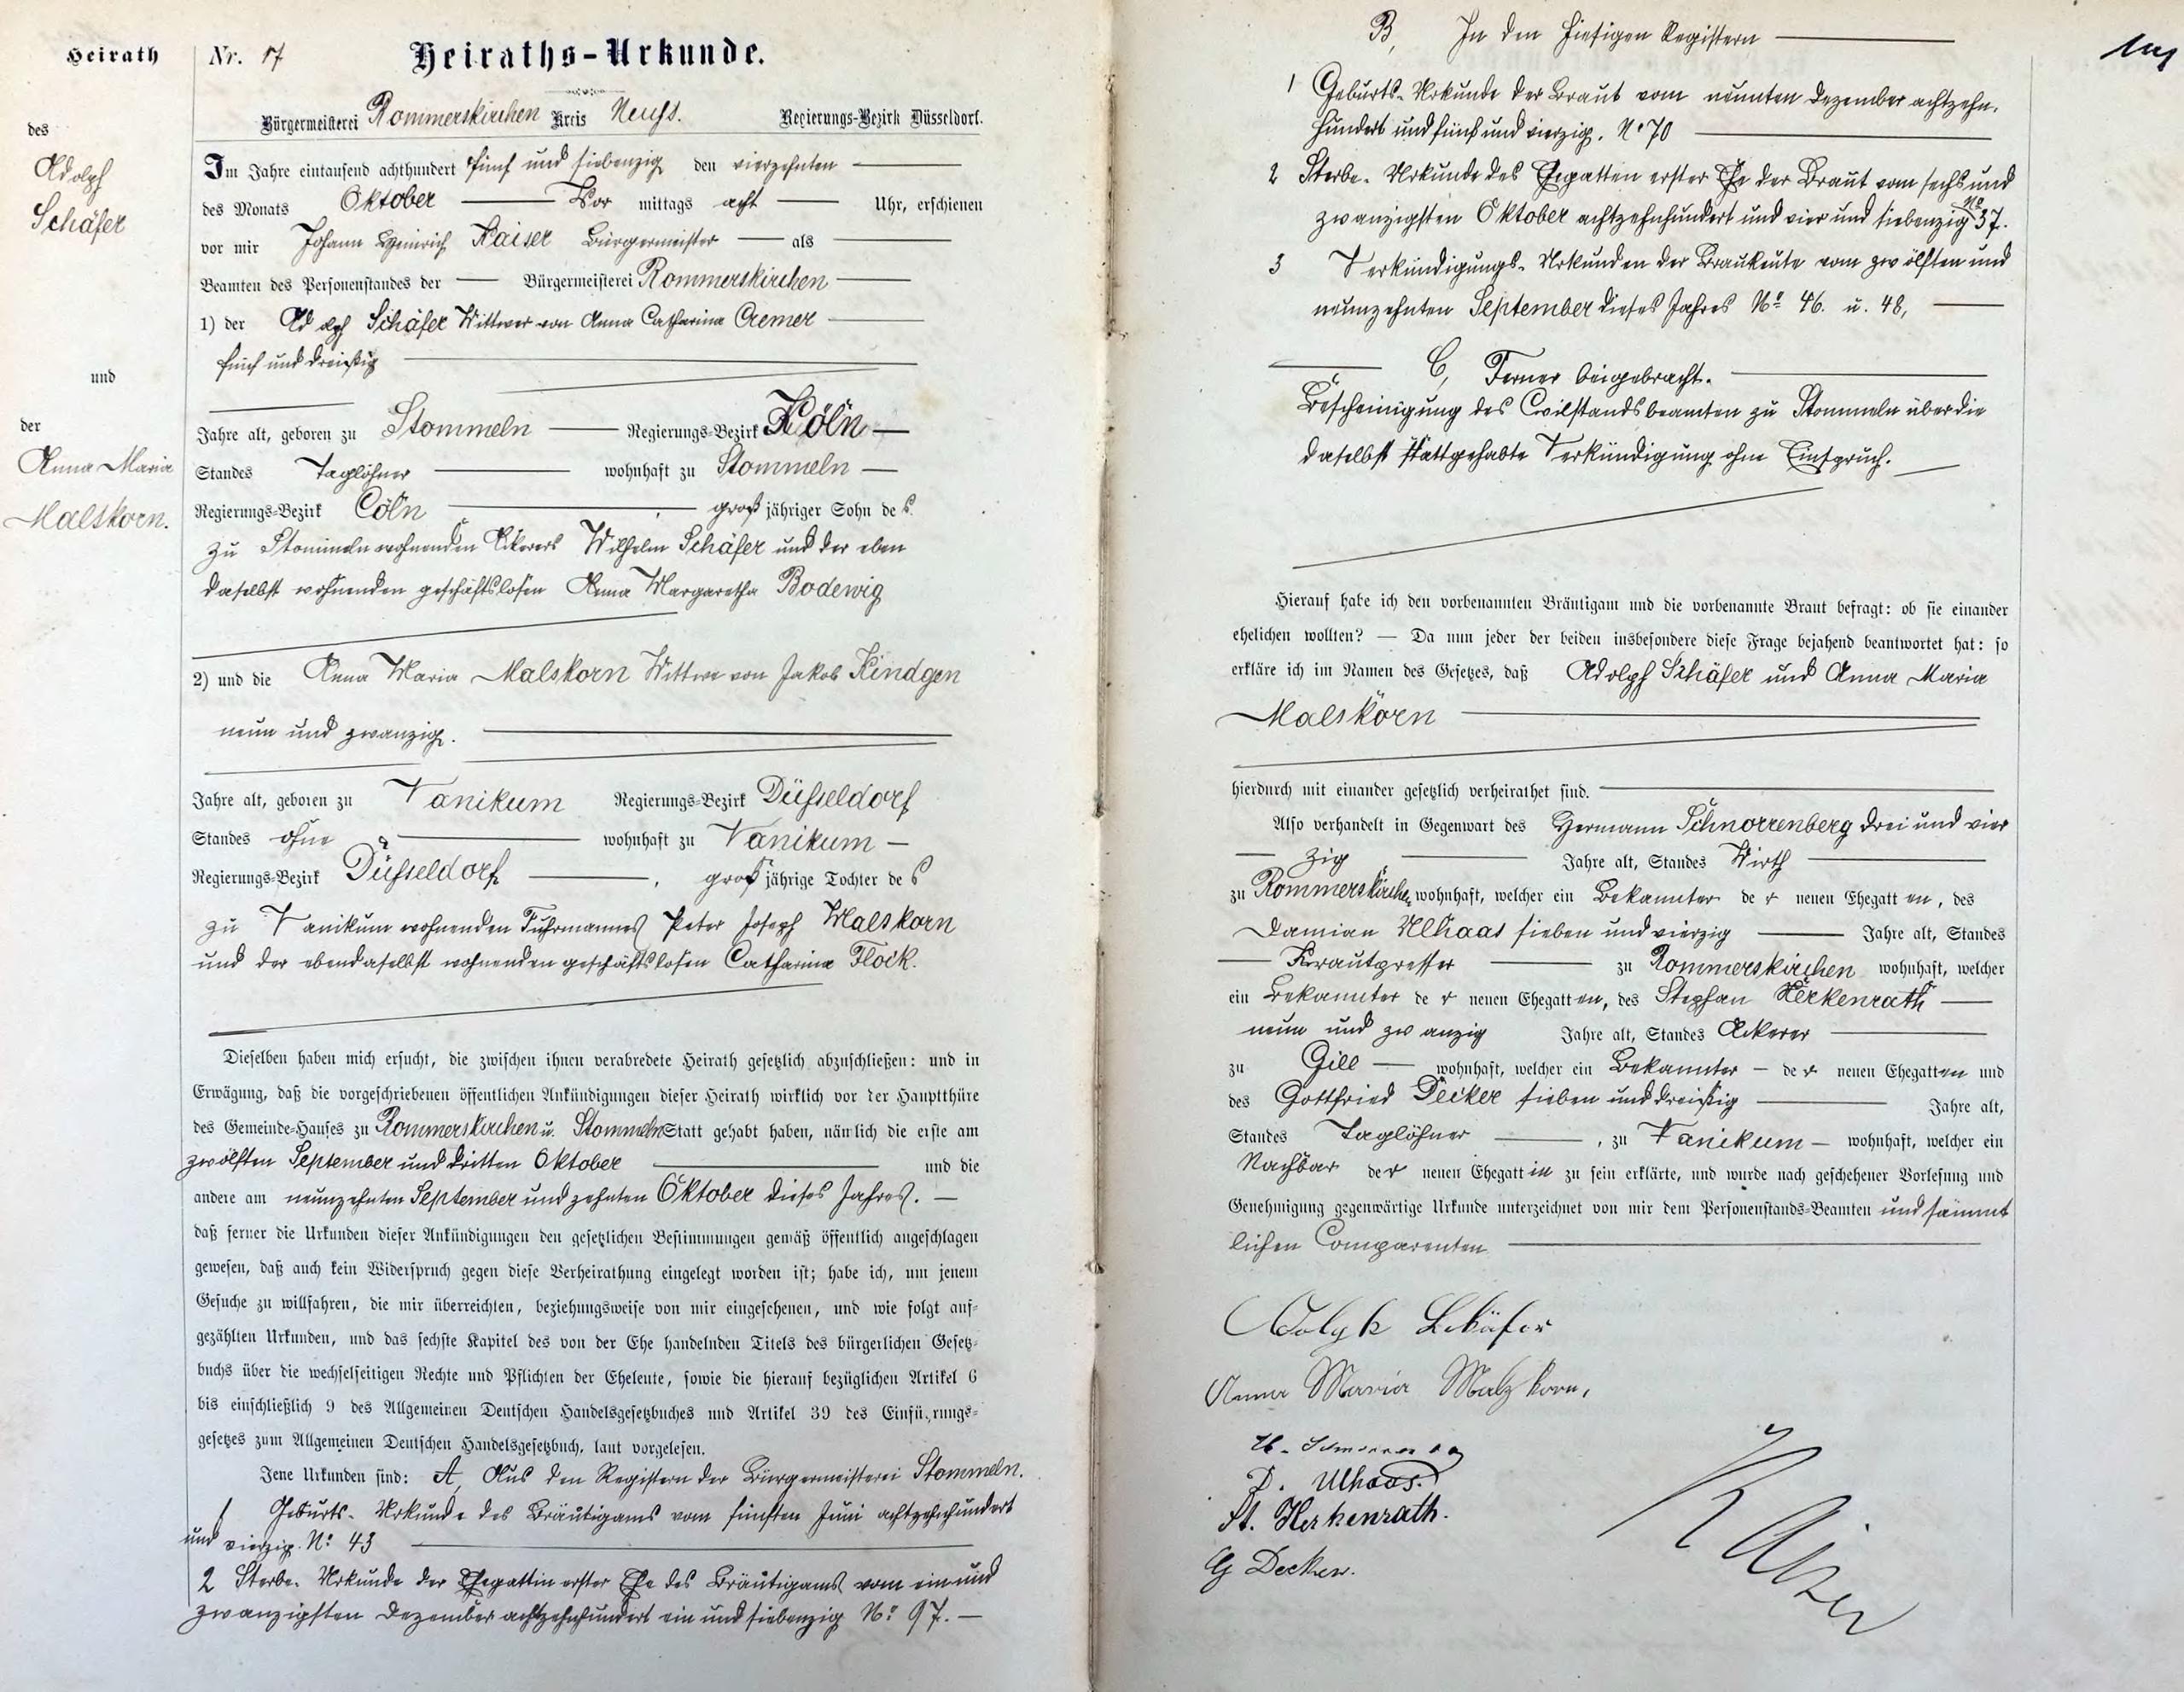 Heirath
des
Adolph
Schäfer
und
der
Anna Maria
Malskorn.
Nr. 17 Heiraths-Urkunde.
Bürgermeisterei Rommerskirchen Kreis Neuss. Regierungs-Bezirk Düsseldorf.
Im Jahre eintausend achthundert fünf und siebenzig den vierzehnten
des Monats Oktober Vor mittags acht Uhr, erschienen
vor mir Johann Heinrich Kaiser Bürgermeister als
Beamten des Personenstandes der Bürgermeisterei Rommerskirchen
1) der Adolph Schäfer Wittwer von Anna Catharina Cremer
fünf und dreißig
Jahre alt, geboren zu Stommeln Regierungs-Bezirk Köln
Standes Taglöhner wohnhaft zu Stommeln
Regierungs-Bezirk Cöln, groß jähriger Sohn des
zu Stommeln wohnenden Ackerers Wilhelm Schäfer und der eben
daselbst wohnenden geschäftslosen Anna Margaretha Bodewig
2) und die Anna Maria Malskorn Wittwe von Jakob Kindgen
neun und zwanzig.
Jahre alt, geboren zu Vanikum Regierungs-Bezirk Düsseldorf
Standes ohne wohnhaft zu Vanikum
Regierungs-Bezirk Düsseldorf, groß jährige Tochter des
zu Vanikum wohnenden Fuhrmannes Peter Joseph Malskorn
und der ebendaselbst wohnenden geschäftslosen Catharina Flock.
Dieselben haben mich ersucht, die zwischen ihnen verabredete Heirath gesetzlich abzuschließen: und in
Erwägung, daß die vorgeschriebenen öffentlichen Ankündigungen dieser Heirath wirklich vor der Hauptthüre
des Gemeinde-Hauses zu Rommerskirchen u. Stommeln Statt gehabt haben, nämlich die erste am
zwölften September und dritten Oktober und die
andere am neunzehnten September und zehnten Oktober dieses Jahres.
daß ferner die Urkunden dieser Ankündigungen den gesetzlichen Bestimmungen gemäß öffentlich angeschlagen
gewesen, daß auch kein Widerspruch gegen diese Verheirathung eingelegt worden ist; habe ich, um jenem
Gesuche zu willfahren, die mir überreichten, beziehungsweise von mir eingesehenen, und wie folgt auf-
gezählten Urkunden, und das sechste Kapitel des von der Ehe handelnden Titels des bürgerlichen Gesetz-
buchs über die wechselseitigen Rechte und Pflichten der Eheleute, sowie die hierauf bezüglichen Artikel 6
bis einschließlich 9 des Allgemeinen Deutschen Handelsgesetzbuches und Artikel 39 des Einführungs-
gesetzes zum Allgemeinen Deutschen Handelsgesetzbuch, laut vorgelesen.
Jene Urkunden sind: A, Aus den Registern der Bürgermeisterei Stommeln.
1 Geburts-Urkunde des Bräutigams vom fünften Juni achtzehnhundert
und vierzig. No. 43
2 Sterbe-Urkunde der Ehegattin erster Ehe des Bräutigams vom ein und
zwanzigsten Dezember achtzehnhundert ein und siebenzig No. 97.
B, In den hiesigen Registern
1 Geburts-Urkunde der Braut vom neunten Dezember achtzehn-
hundert und fünf und vierzig. No 70
2 Sterbe-Urkunde des Ehegatten erster Ehe der Braut vom sechs und
zwanzigsten Oktober achtzehnhundert und vier und siebenzig No 37.
3 Verkündigungs-Urkunden der Brautleute vom zwölften und
neunzehnten September dieses Jahres No. 46. u. 48,
C, Ferner beigebracht.
Bescheinigung des Civilstandsbeamten zu Stommeln über die
daselbst stattgehabte Verkündigung ohne Einspruch.
Hierauf habe ich den vorbenannten Bräutigam und die vorbenannte Braut befragt: ob sie einander
ehelichen wollten? — Da nun jeder der beiden insbesondere diese Frage bejahend beantwortet hat: so
erkläre ich im Namen des Gesetzes, daß Adolph Schäfer und Anna Maria
Malskorn
hierdurch mit einander gesetzlich verheirathet sind.
Also verhandelt in Gegenwart des Hermann Schnorrenberg drei und vier
zig Jahre alt, Standes Wirth
zu Rommerskirchen wohnhaft, welcher ein Bekannter der neuen Ehegatten, des
Damian Ulhaas sieben und vierzig Jahre alt, Standes
Krautpresser zu Rommerskirchen wohnhaft, welcher
ein Bekannter der neuen Ehegatten, des Stephan Herkenrath
neun und zwanzig Jahre alt, Standes Ackerer
zu Gill wohnhaft, welcher ein Bekannter der neuen Ehegatten und
des Gottfried Decker sieben und dreißig Jahre alt,
Standes Taglöhner, zu Vanikum wohnhaft, welcher ein
Nachbar der neuen Ehegattin zu sein erklärte, und wurde nach geschehener Vorlesung und
Genehmigung gegenwärtige Urkunde unterzeichnet von mir dem Personenstands-Beamten und sämmt
lichen Comparenten
Adolph Schäfer
Anna Maria Malzkorn,
D. Ulhaas.
St. Herkenrath.
G Decker.
Kaiser